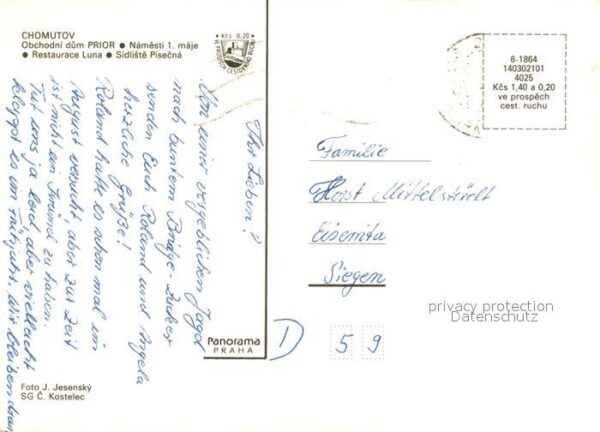 CHOMUTOV
Obchodní dům PRIOR ● Náměstí 1. máje
● Restaurace Luna ● Sídliště Písečná
● Kčs 0,20 ●
VE PROSPĚCH CESTOVNÍHO RUCHU
6-1864
140302101
4025
Kčs 1,40 a 0,20
ve prospěch
cest. ruchu
Ihr Lieben!
Von einer vergeblichen Jagd
nach buntem
senden Euch Roland und Angela
herzliche Grüße!
Roland hatte es schon mal im
August versucht aber zur Zeit
ist nicht ein Krümel zu haben.
Tut uns ja leid, aber vielleicht
klappt es im Frühjahr. Wir bleiben dran
Familie
Horst
Siegen
privacy protection
Datenschutz
D 5 9
Panorama
PRAHA
Foto J. Jesenský
SG Č. Kostelec